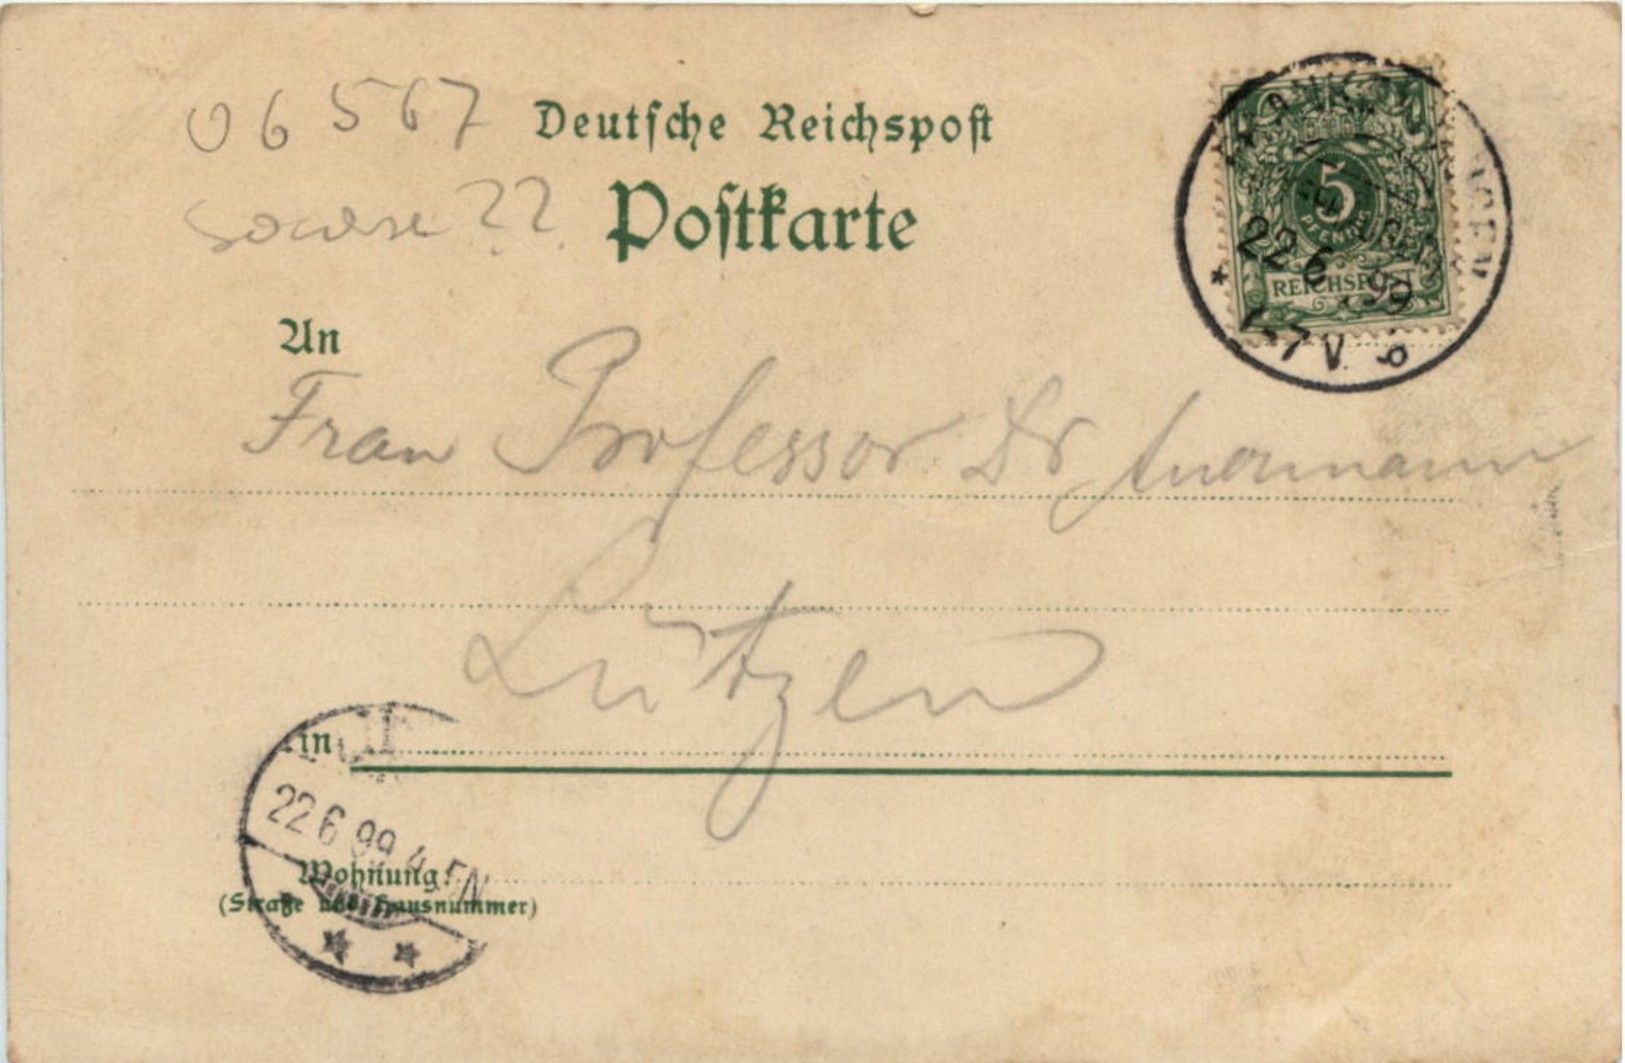 06567 Deutsche Reichspost
Postkarte
5
PFENNIG
REICHSPOST
22 6 99
* 6-7 V. b
An
Frau Professor Dr
Lützen
in
22 6 99 4-5N
Wohnung:
(Straße und Hausnummer)